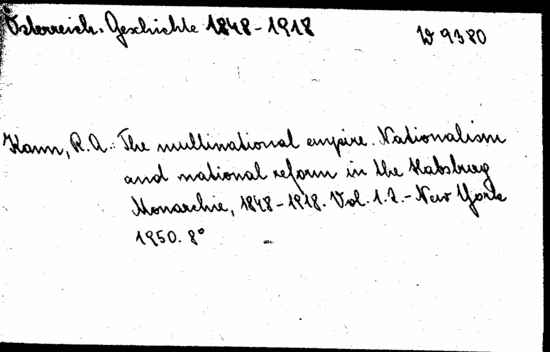 Österreich. Geschichte 1848-1918
W 9380
Kann, R.A.: The multinational empire. Nationalism
and national reform in the Habsburg
Monarchie, 1848-1918. Vol. 1.2.- New York
1950. 8°